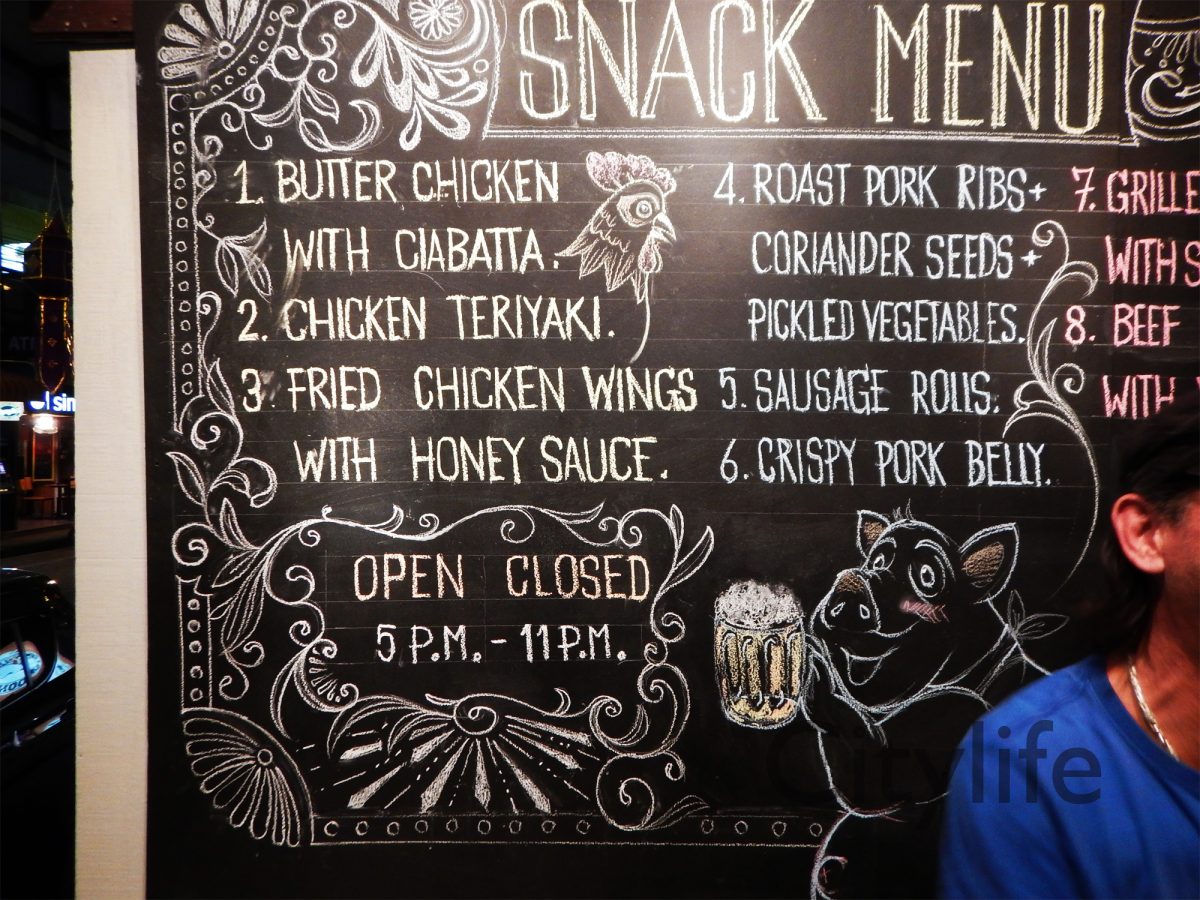 SNACK MENU
1. BUTTER CHICKEN
WITH CIABATTA.
2. CHICKEN TERIYAKI.
3. FRIED CHICKEN WINGS
WITH HONEY SAUCE.
4. ROAST PORK RIBS+
CORIANDER SEEDS +
PICKLED VEGETABLES.
5. SAUSAGE ROLLS.
6. CRISPY PORK BELLY.
7. GRILLE
WITH S
8. BEEF
WITH
OPEN CLOSED
5 P.M. - 11 P.M.
Citylife
sin